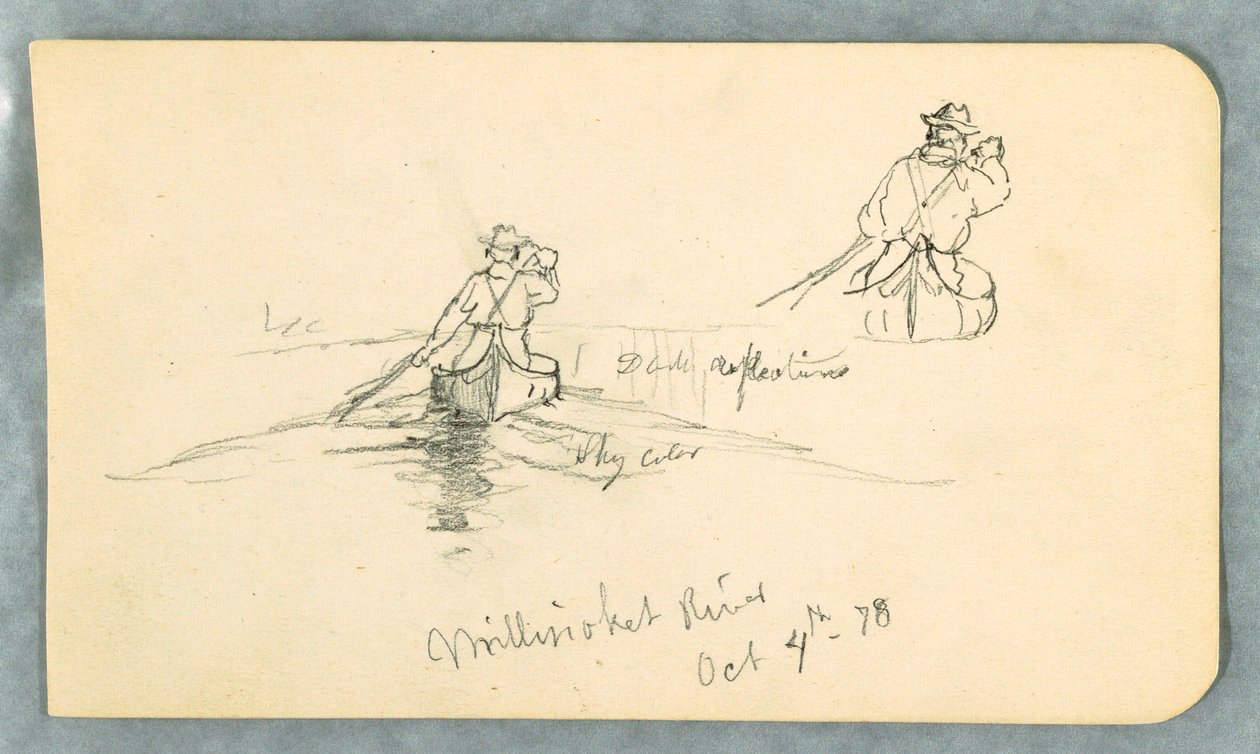 Dark reflections
Sky color
Millinoket River
Oct 4th 78